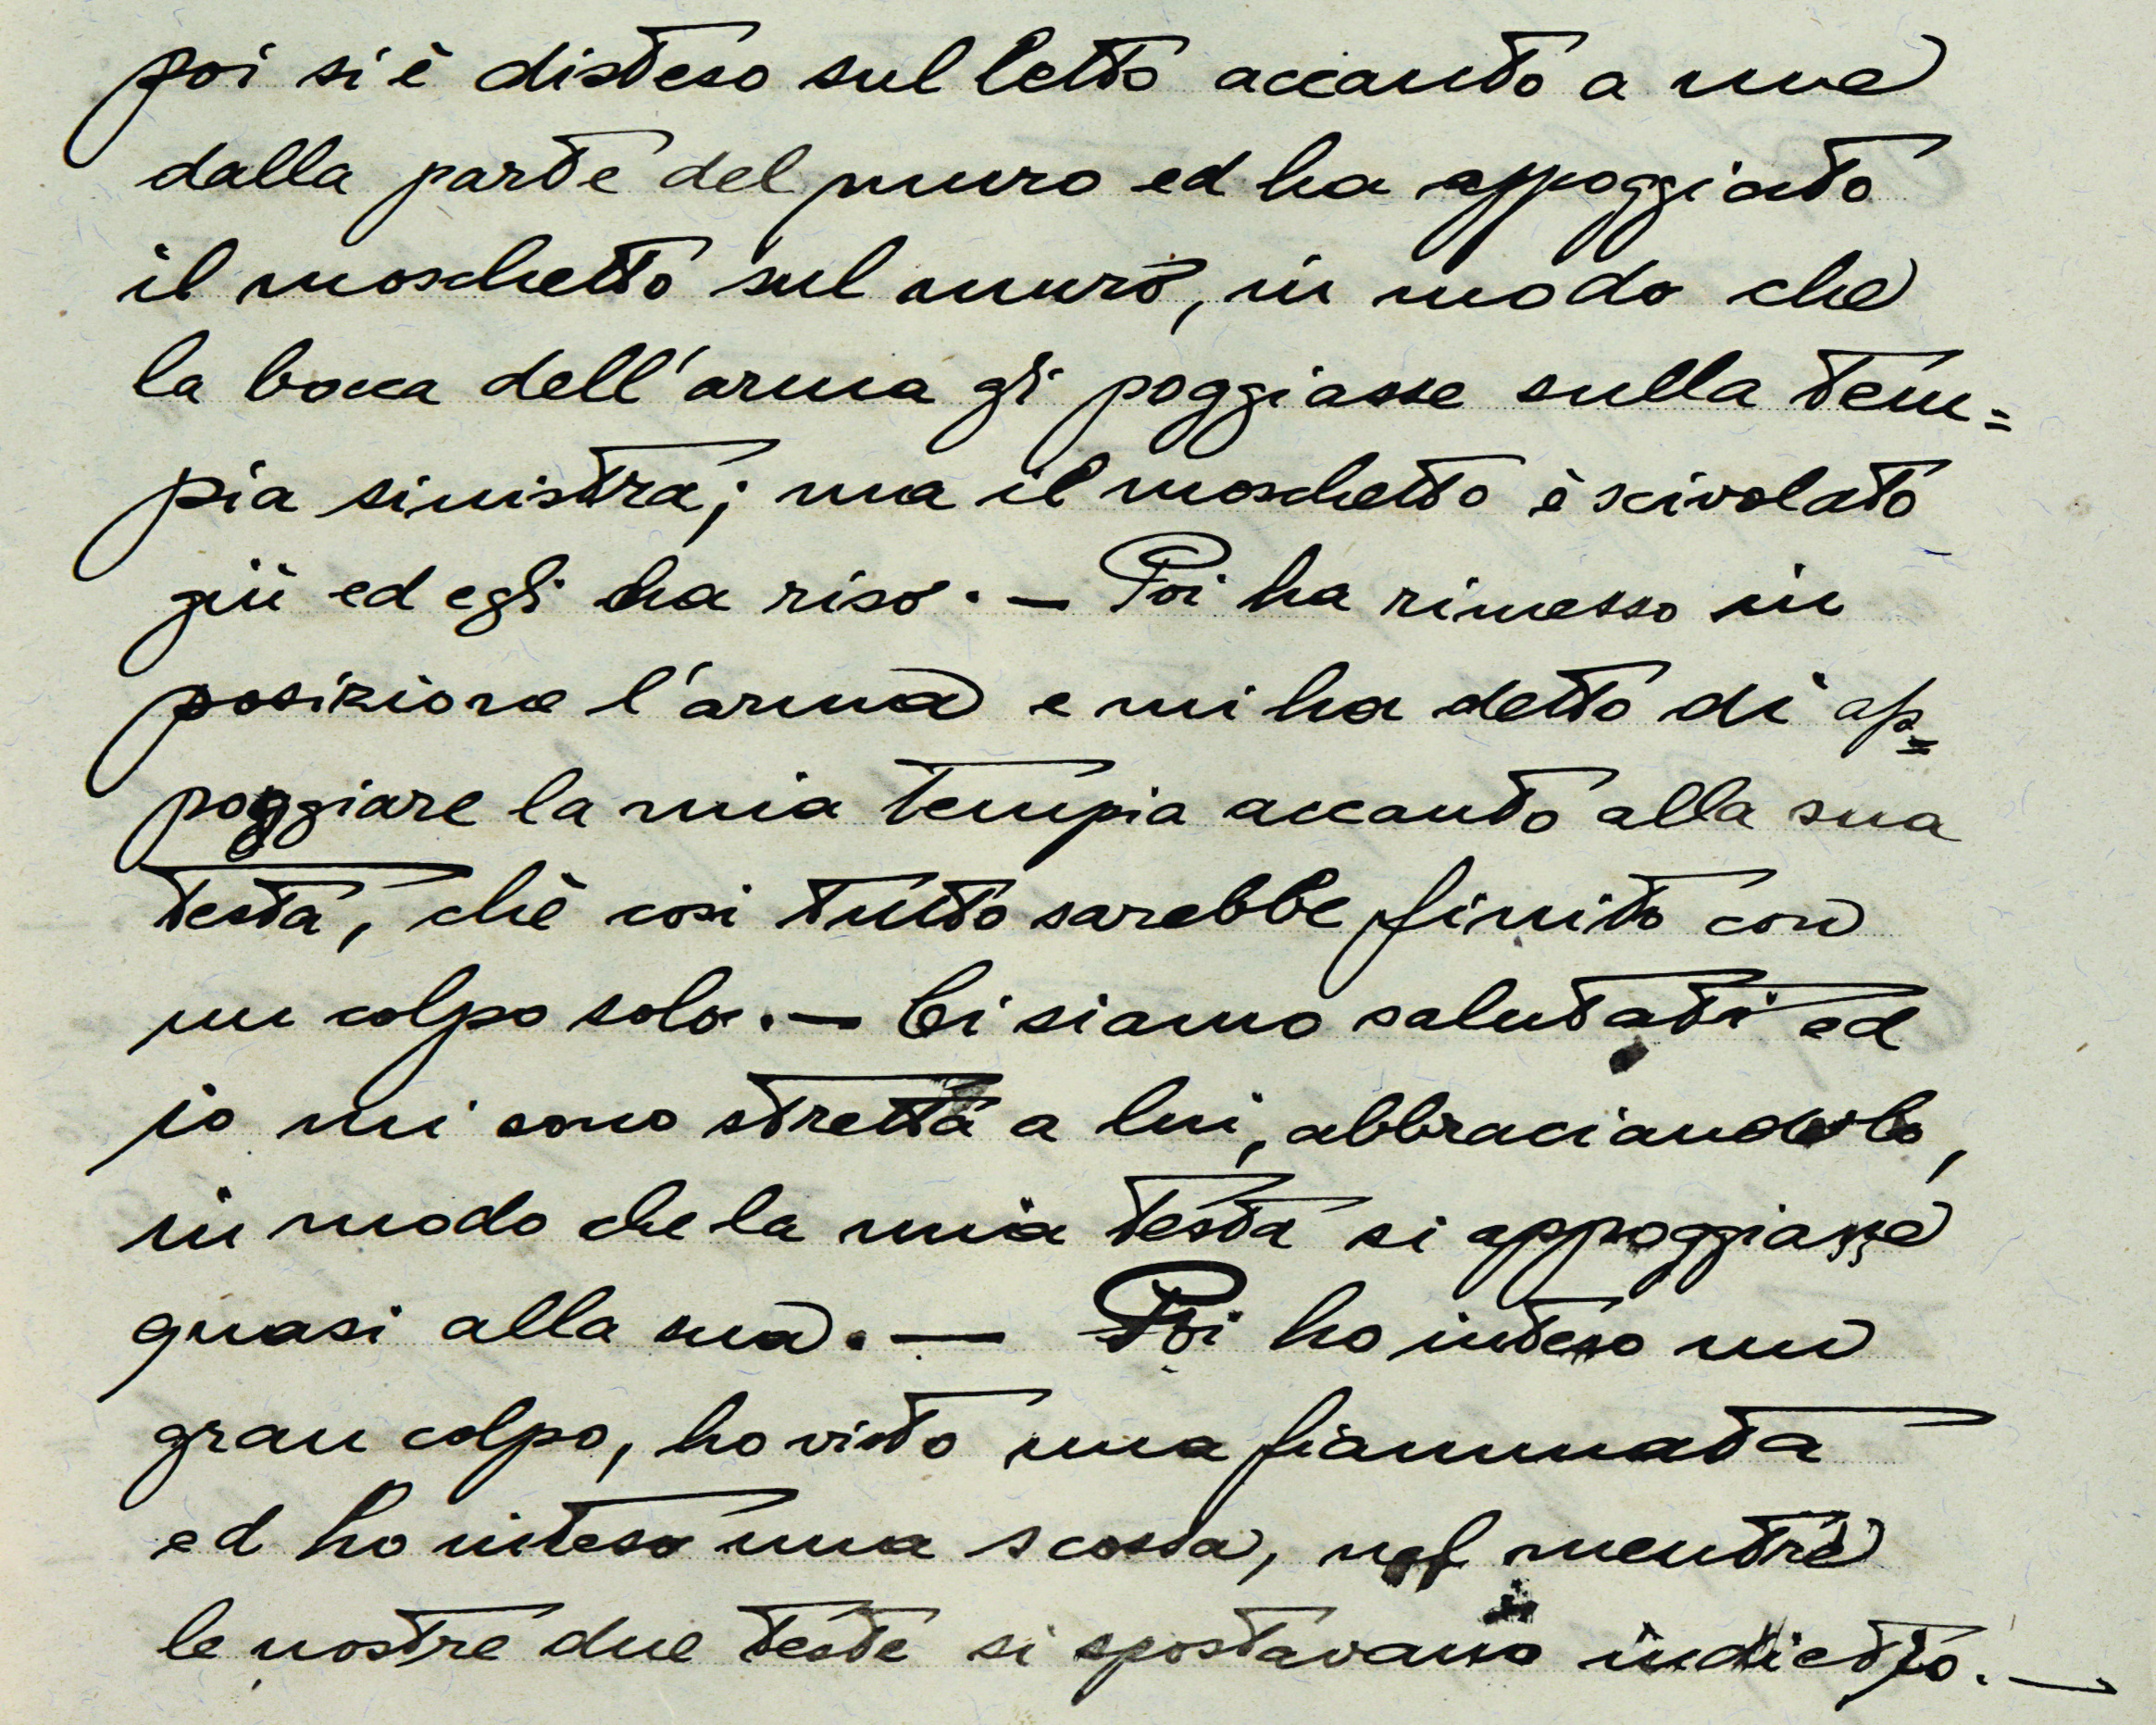 poi si è disteso sul letto accanto a me
dalla parte del muro ed ha appoggiato
il moschetto sul muro, in modo che
la bocca dell'arma gli poggiasse sulla tem=
pia sinistra; ma il moschetto è scivolato
giù ed egli ha riso. — Poi ha rimesso in
posizione l'arma e mi ha detto di ap=
poggiare la mia tempia accanto alla sua
testa, chè così tutto sarebbe finito con
un colpo solo. — Ci siamo salutati ed
io mi sono stretta a lui, abbracciandolo,
in modo che la mia testa si appoggiasse
quasi alla sua. — Poi ho inteso un
gran colpo, ho visto una fiammata
ed ho inteso una scossa, nel mentre
le nostre due teste si spostavano indietro. —